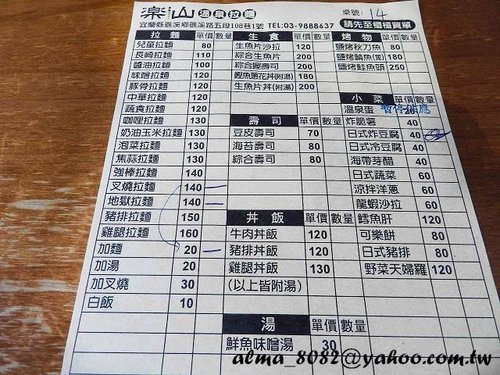 樂山 溫泉拉麵
桌號: 14
宜蘭縣礁溪鄉礁溪路五段108巷1號 TEL:03-9888637
請先至櫃檯買單
拉麵 單價 數量
兒童拉麵 80
長崎拉麵 110
醬油拉麵 100
味噌拉麵 120
豚骨拉麵 120
中華拉麵 120
蔬食拉麵 120
咖哩拉麵 130
奶油玉米拉麵 130
泡菜拉麵 130
蕉蒜拉麵 130
強棒拉麵 140
叉燒拉麵 140
地獄拉麵 140
豬排拉麵 150
雞腿拉麵 160
加麵 20
加湯 20
加叉燒 30
白飯 10
生食 單價 數量
生魚片沙拉 120
綜合生魚片 200
綜合握壽司 200
鮭魚蔥花丼(附湯) 180
生魚片丼(附湯) 200
壽司 單價 數量
豆皮壽司 70
海苔壽司 80
綜合壽司 80
丼飯 單價 數量
牛肉丼飯 120
豬排丼飯 120
雞腿丼飯 130
(以上皆附湯)
湯 單價 數量
鮮魚味噌湯 30
烤物 單價 數量
鹽烤秋刀魚 80
鹽烤鯖魚 180
鹽烤鮭魚頭 250
小菜 單價 數量
溫泉蛋
炸脆薯 40
日式炸豆腐 40
日式冷豆腐 40
海帶芽醋 40
日式蔬菜 60
涼拌洋蔥 60
龍蝦沙拉 60
鱈魚肝 120
可樂餅 80
日式豬排 80
野菜天婦羅 120
alma_8082@yahoo.com.tw